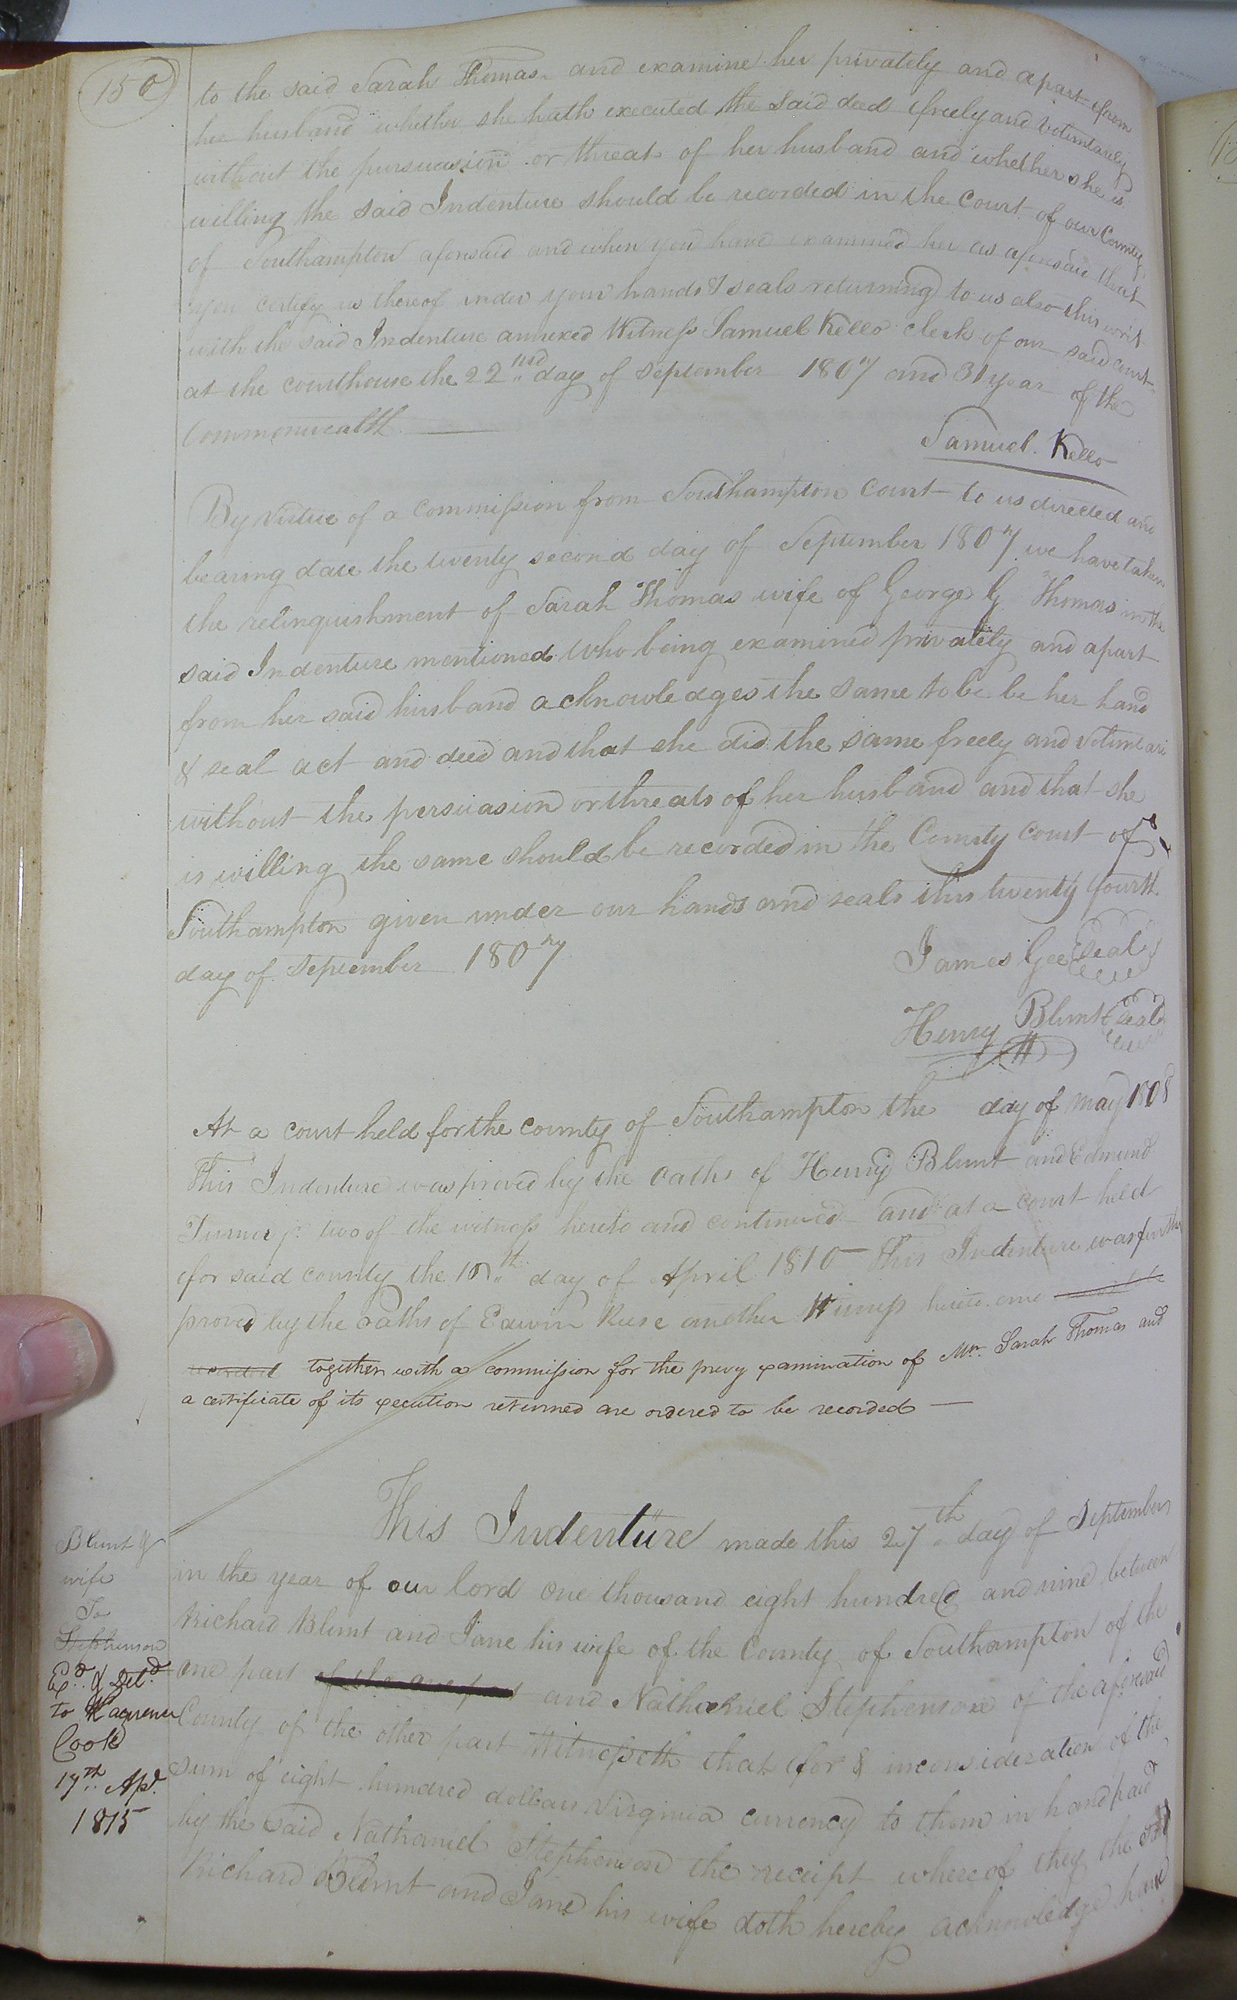 150
to the said Sarah Thomas and examine her privately and apart from
her husband whether she hath executed the said deed freely and voluntarily
without the pursuasion or threats of her husband and whether she is
willing the said Indenture should be recorded in the Court of our County
of Southampton aforesaid and when you have examined her as aforesaid that
you certify us thereof under your hands & seals returning to us also this writ
with the said Indenture annexed Witness Samuel Kello clerk of our said court
at the courthouse the 22nd day of September 1807 and 31 year of the
Commonwealth
Samuel Kello
By Virtue of a commission from Southampton Court to us directed and
bearing date the twenty second day of September 1807 we have taken
the relinquishment of Sarah Thomas wife of George G Thomas in the
said Indenture mentioned who being examined privately and apart
from her said husband acknowledges the same to be be her hand
& seal act and deed and that she did the same freely and voluntari
without the persuasion or threats of her husband and that she
is willing the same should be recorded in the County Court of
Southampton given under our hands and seals this twenty fourth
day of September 1807
James Gee Seal
Henry Blunt Seal
At a court held for the county of Southampton the day of May 1808
This Indenture was proved by the oaths of Henry Blunt and Edmund
Turner jr two of the witness hereto and continued and at a court held
for said county the day of April 1810 This Indenture was further
proved by the oaths of Edwin another Witness hereto and
recorded together with a commission for the privy examination of Mrs Sarah Thomas and
a certificate of its execution returned are ordered to be recorded
Blunt &
wife
To
Stephenson
Exd & Deld
to
Cook
17th Apl
1815
This Indenture made this 27th day of September
in the year of our lord one thousand eight hundred and nine between
Richard Blunt and Jane his wife of the County of Southampton of the
one part of the one part and Nathaniel Stephenson of the aforesaid
County of the other part Witnesseth that for & inconsideration of the
sum of eight hundred dollars Virginia currency to them in hand paid
by the said Nathaniel Stephenson the receipt whereof they the said
Richard Blunt and Jane his wife doth hereby acknowledge have